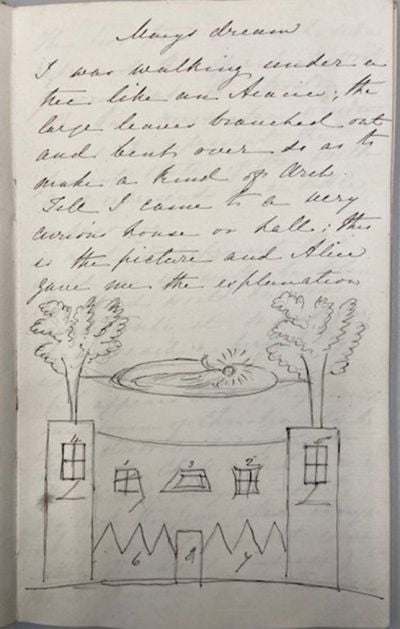 Marys dream
I was walking under a
tree like an Acacia; the
large leaves branched out
and bent over so as to
make a kind of Arch.
Till I came to a very
curious house or hall; this
is the picture and Alice
gave me the explanation
4 5
1 3 2
6 8 7